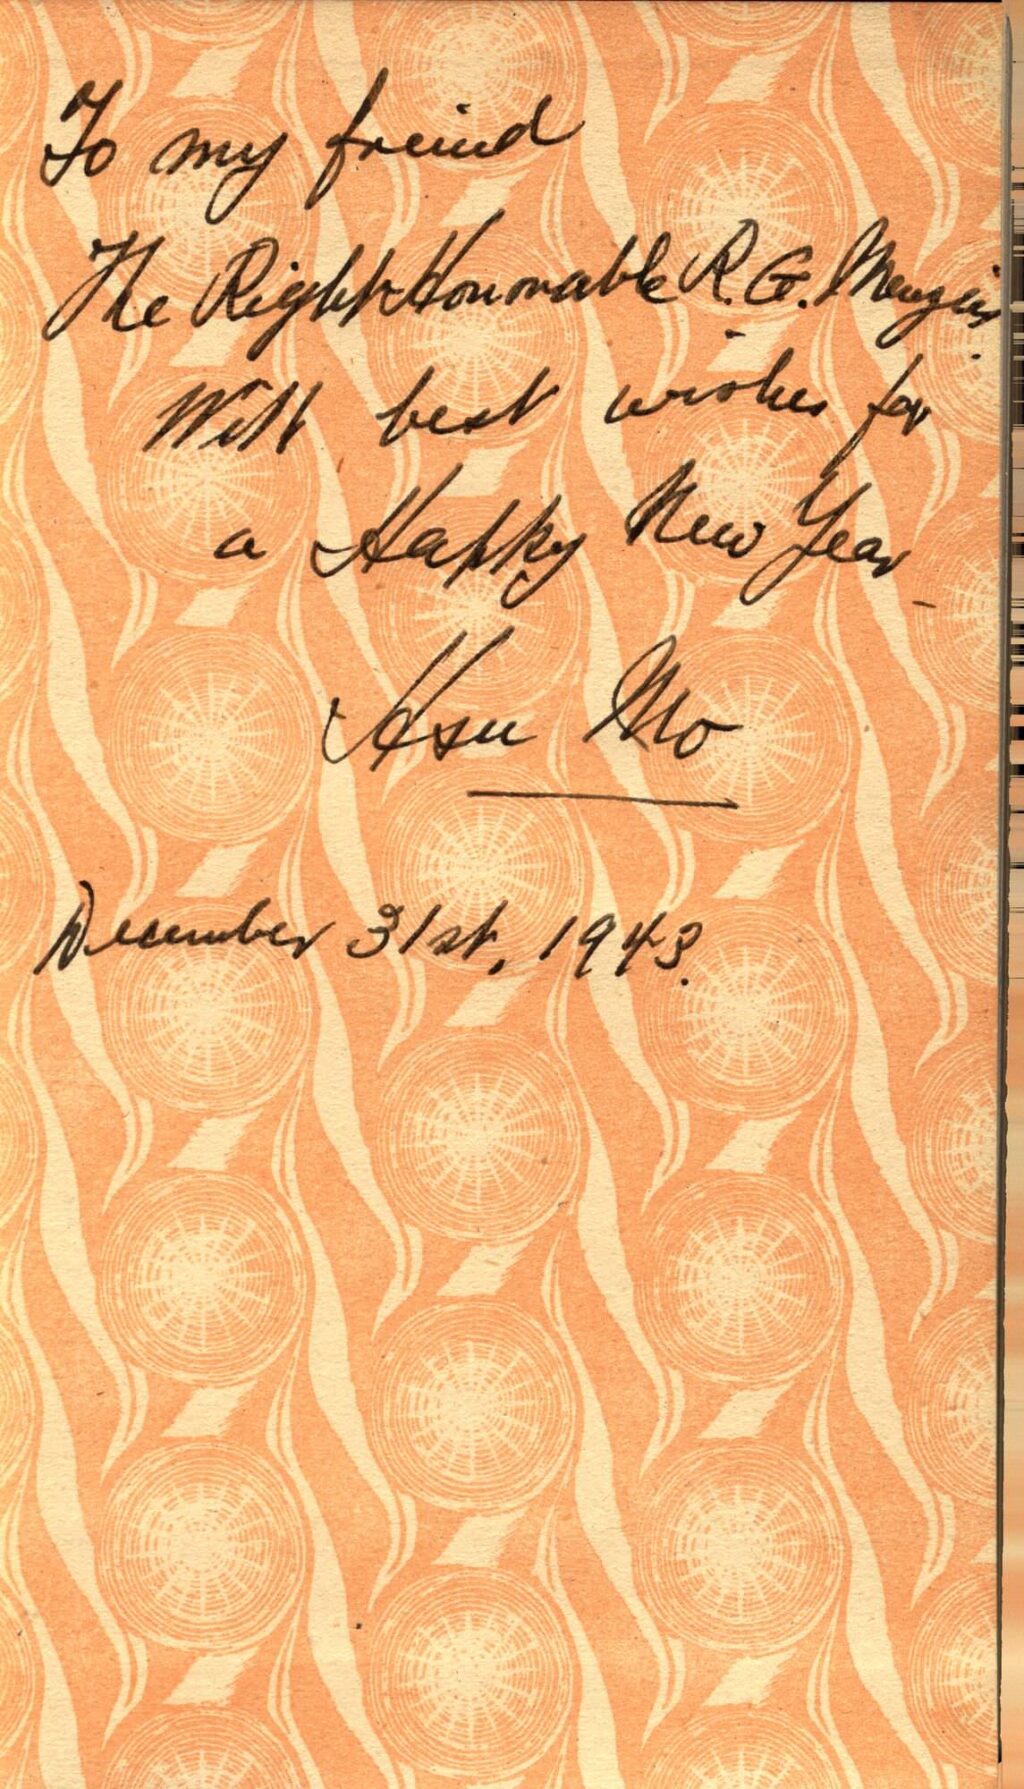 To my friend
The Right Honorable R. G. Menzies.
With best wishes for
a Happy New Year
Hsu Mo
December 31st, 1943.